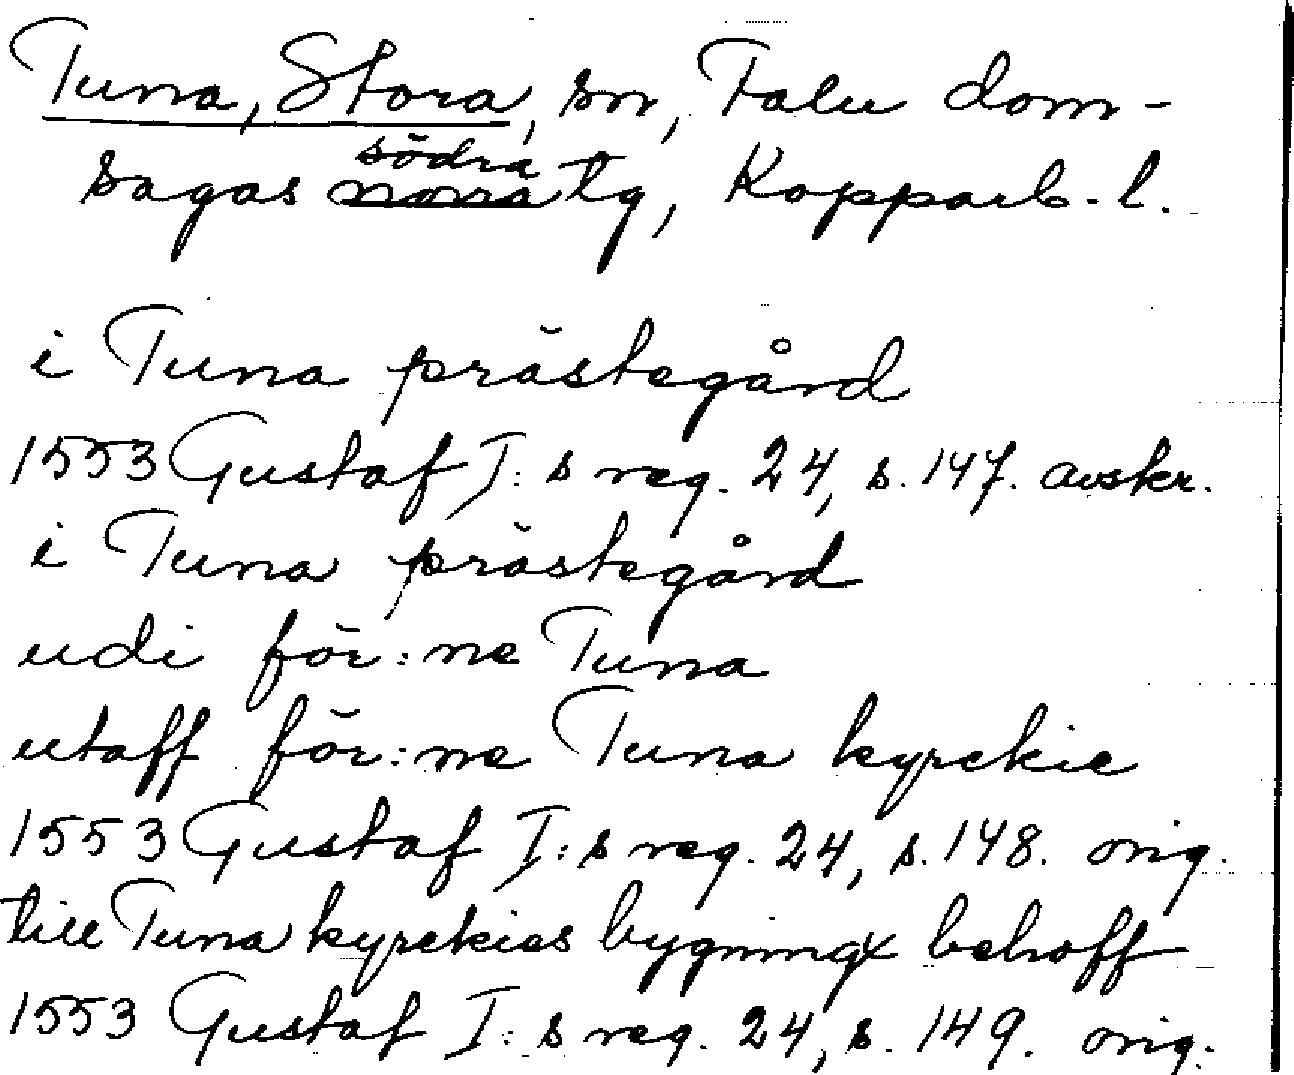 Tuna, Stora, sn, Falu dom-
sagas södra tg, Kopparb. l.
i Tuna prästegård
1553 Gustaf I:s reg. 24, s. 147. avskr.
i Tuna prästegård
udi för:ne Tuna
utaff för:ne Tuna kyrckie
1553 Gustaf I:s reg. 24, s. 148. orig.
till Tuna kyrckies bygningx behoff
1553 Gustaf I:s reg. 24, s. 149. orig.